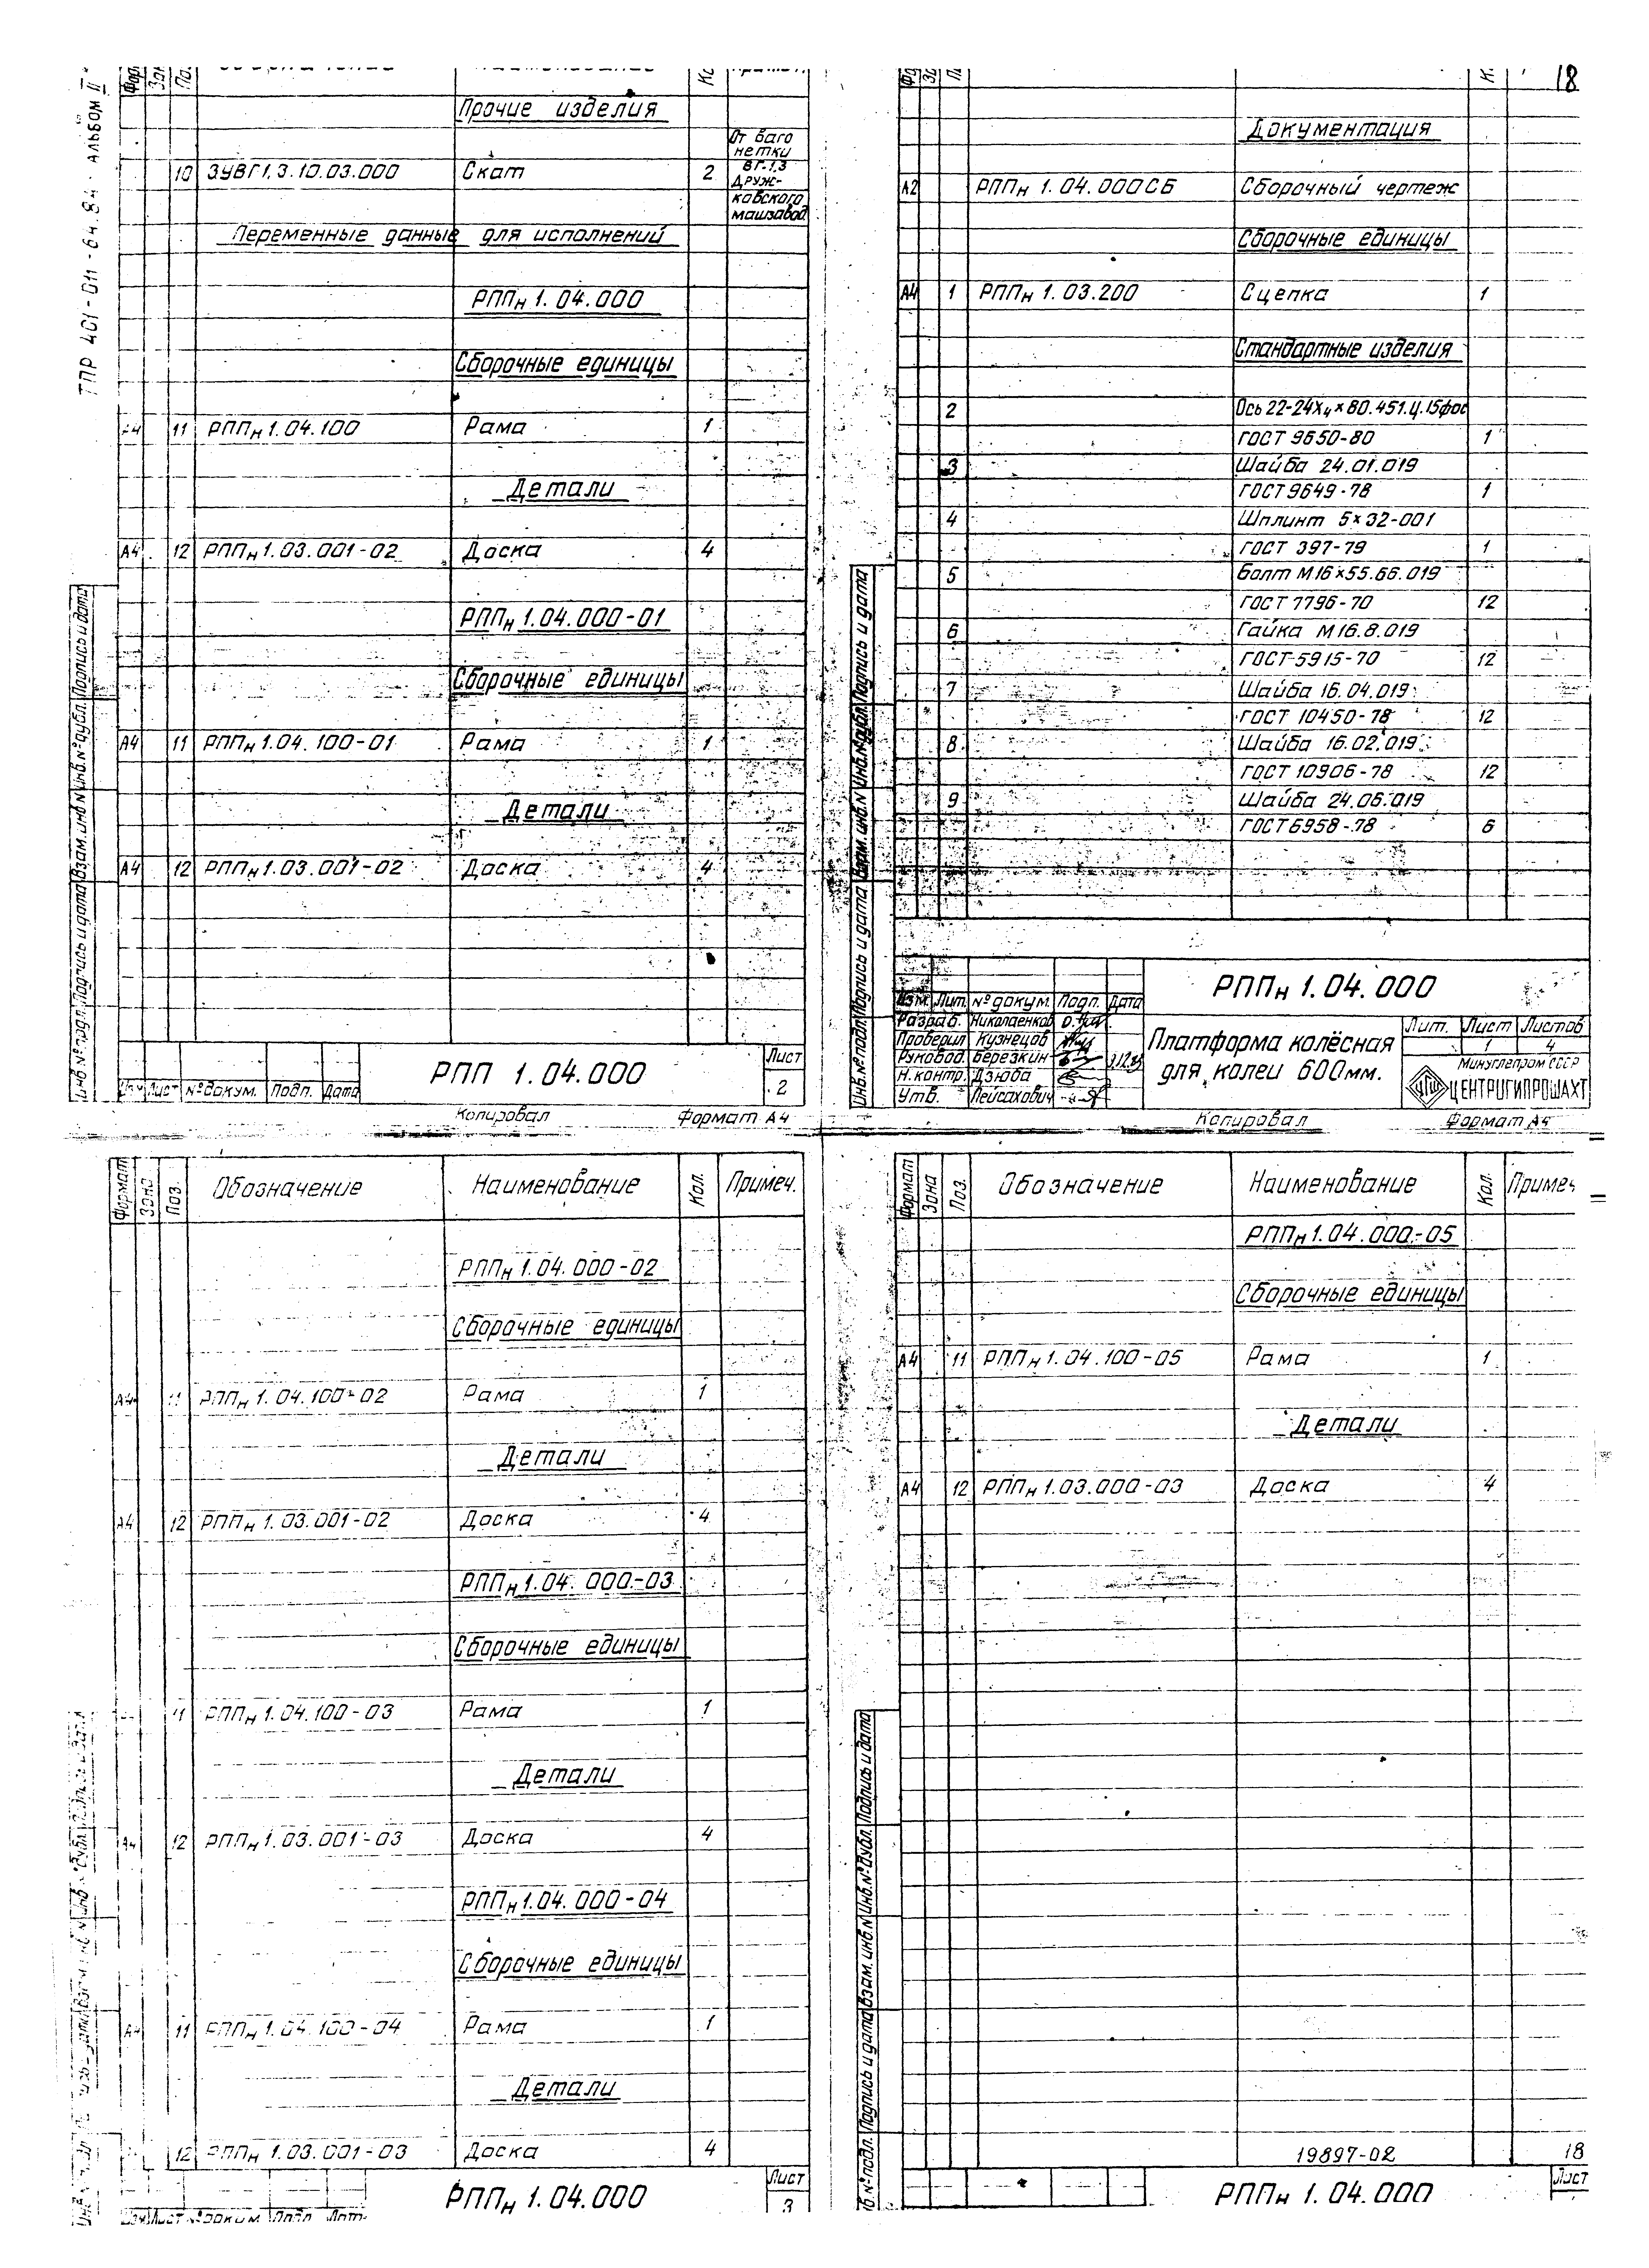 18
ТПР 401-011-64.84 АЛЬБОМ II
Прочие изделия
10 ЗУВГ1,3.10.03.000 Скат 2
От ваго
нетки
ВГ-1,3
Друж-
ковского
машзавод.
Переменные данные для исполнений
РППн 1.04.000
Сборочные единицы
А4 11 РППн 1.04.100 Рама 1
Детали
А4 12 РППн 1.03.001-02 Доска 4
РППн 1.04.000-01
Сборочные единицы
А4 11 РППн 1.04.100-01 Рама 1
Детали
А4 12 РППн 1.03.001-02 Доска 4
Инв.№подл. Подпись и дата Взам.инв.№ Инв.№дубл. Подпись и дата
Изм Лист №докум. Подп. Дата
РПП 1.04.000
Лист
2
Копировал Формат А4
Документация
А2 РППн 1.04.000СБ Сборочный чертеж
Сборочные единицы
А4 1 РППн 1.03.200 Сцепка 1
Стандартные изделия
2 Ось 22-24х4×80.451.Ц.15фос
ГОСТ 9650-80 1
3 Шайба 24.01.019
ГОСТ 9649-78 1
4 Шплинт 5×32-001
ГОСТ 397-79 1
5 Болт М16×55.66.019
ГОСТ 7796-70 12
6 Гайка М16.8.019
ГОСТ 5915-70 12
7 Шайба 16.04.019
ГОСТ 10450-78 12
8 Шайба 16.02.019
ГОСТ 10906-78 12
9 Шайба 24.06.019
ГОСТ 6958-78 6
Инв.№подл. Подпись и дата Взам.инв.№ Инв.№дубл. Подпись и дата
РППн 1.04.000
Изм. Лит. №докум. Подп. Дата
Разраб. Николаенков
Проверил Кузнецов
Руковод. Березкин
Н.контр. Дзюба
Утв. Пейсахович
Платформа колёсная
для колеи 600мм.
Лит. Лист Листов
1 4
Минуглепром СССР
ЦЕНТРОГИПРОШАХТ
Копировал Формат А4
Формат Зона Поз. Обозначение Наименование Кол. Примеч.
РППн 1.04.000-02
Сборочные единицы
А4 11 РППн 1.04.100-02 Рама 1
Детали
А4 12 РППн 1.03.001-02 Доска 4
РППн 1.04.000-03
Сборочные единицы
11 РППн 1.04.100-03 Рама 1
Детали
А4 12 РППн 1.03.001-03 Доска 4
РППн 1.04.000-04
Сборочные единицы
А4 11 РППн 1.04.100-04 Рама 1
Детали
12 РППн 1.03.001-03 Доска 4
РППн 1.04.000
Лист
3
Формат Зона Поз. Обозначение Наименование Кол. Примеч
РППн 1.04.000-05
Сборочные единицы
А4 11 РППн 1.04.100-05 Рама 1
Детали
А4 12 РППн 1.03.000-03 Доска 4
Подпись и дата Взам.инв.№ Инв.№дубл. Подпись и дата
19897-02 18
РППн 1.04.000
Лист